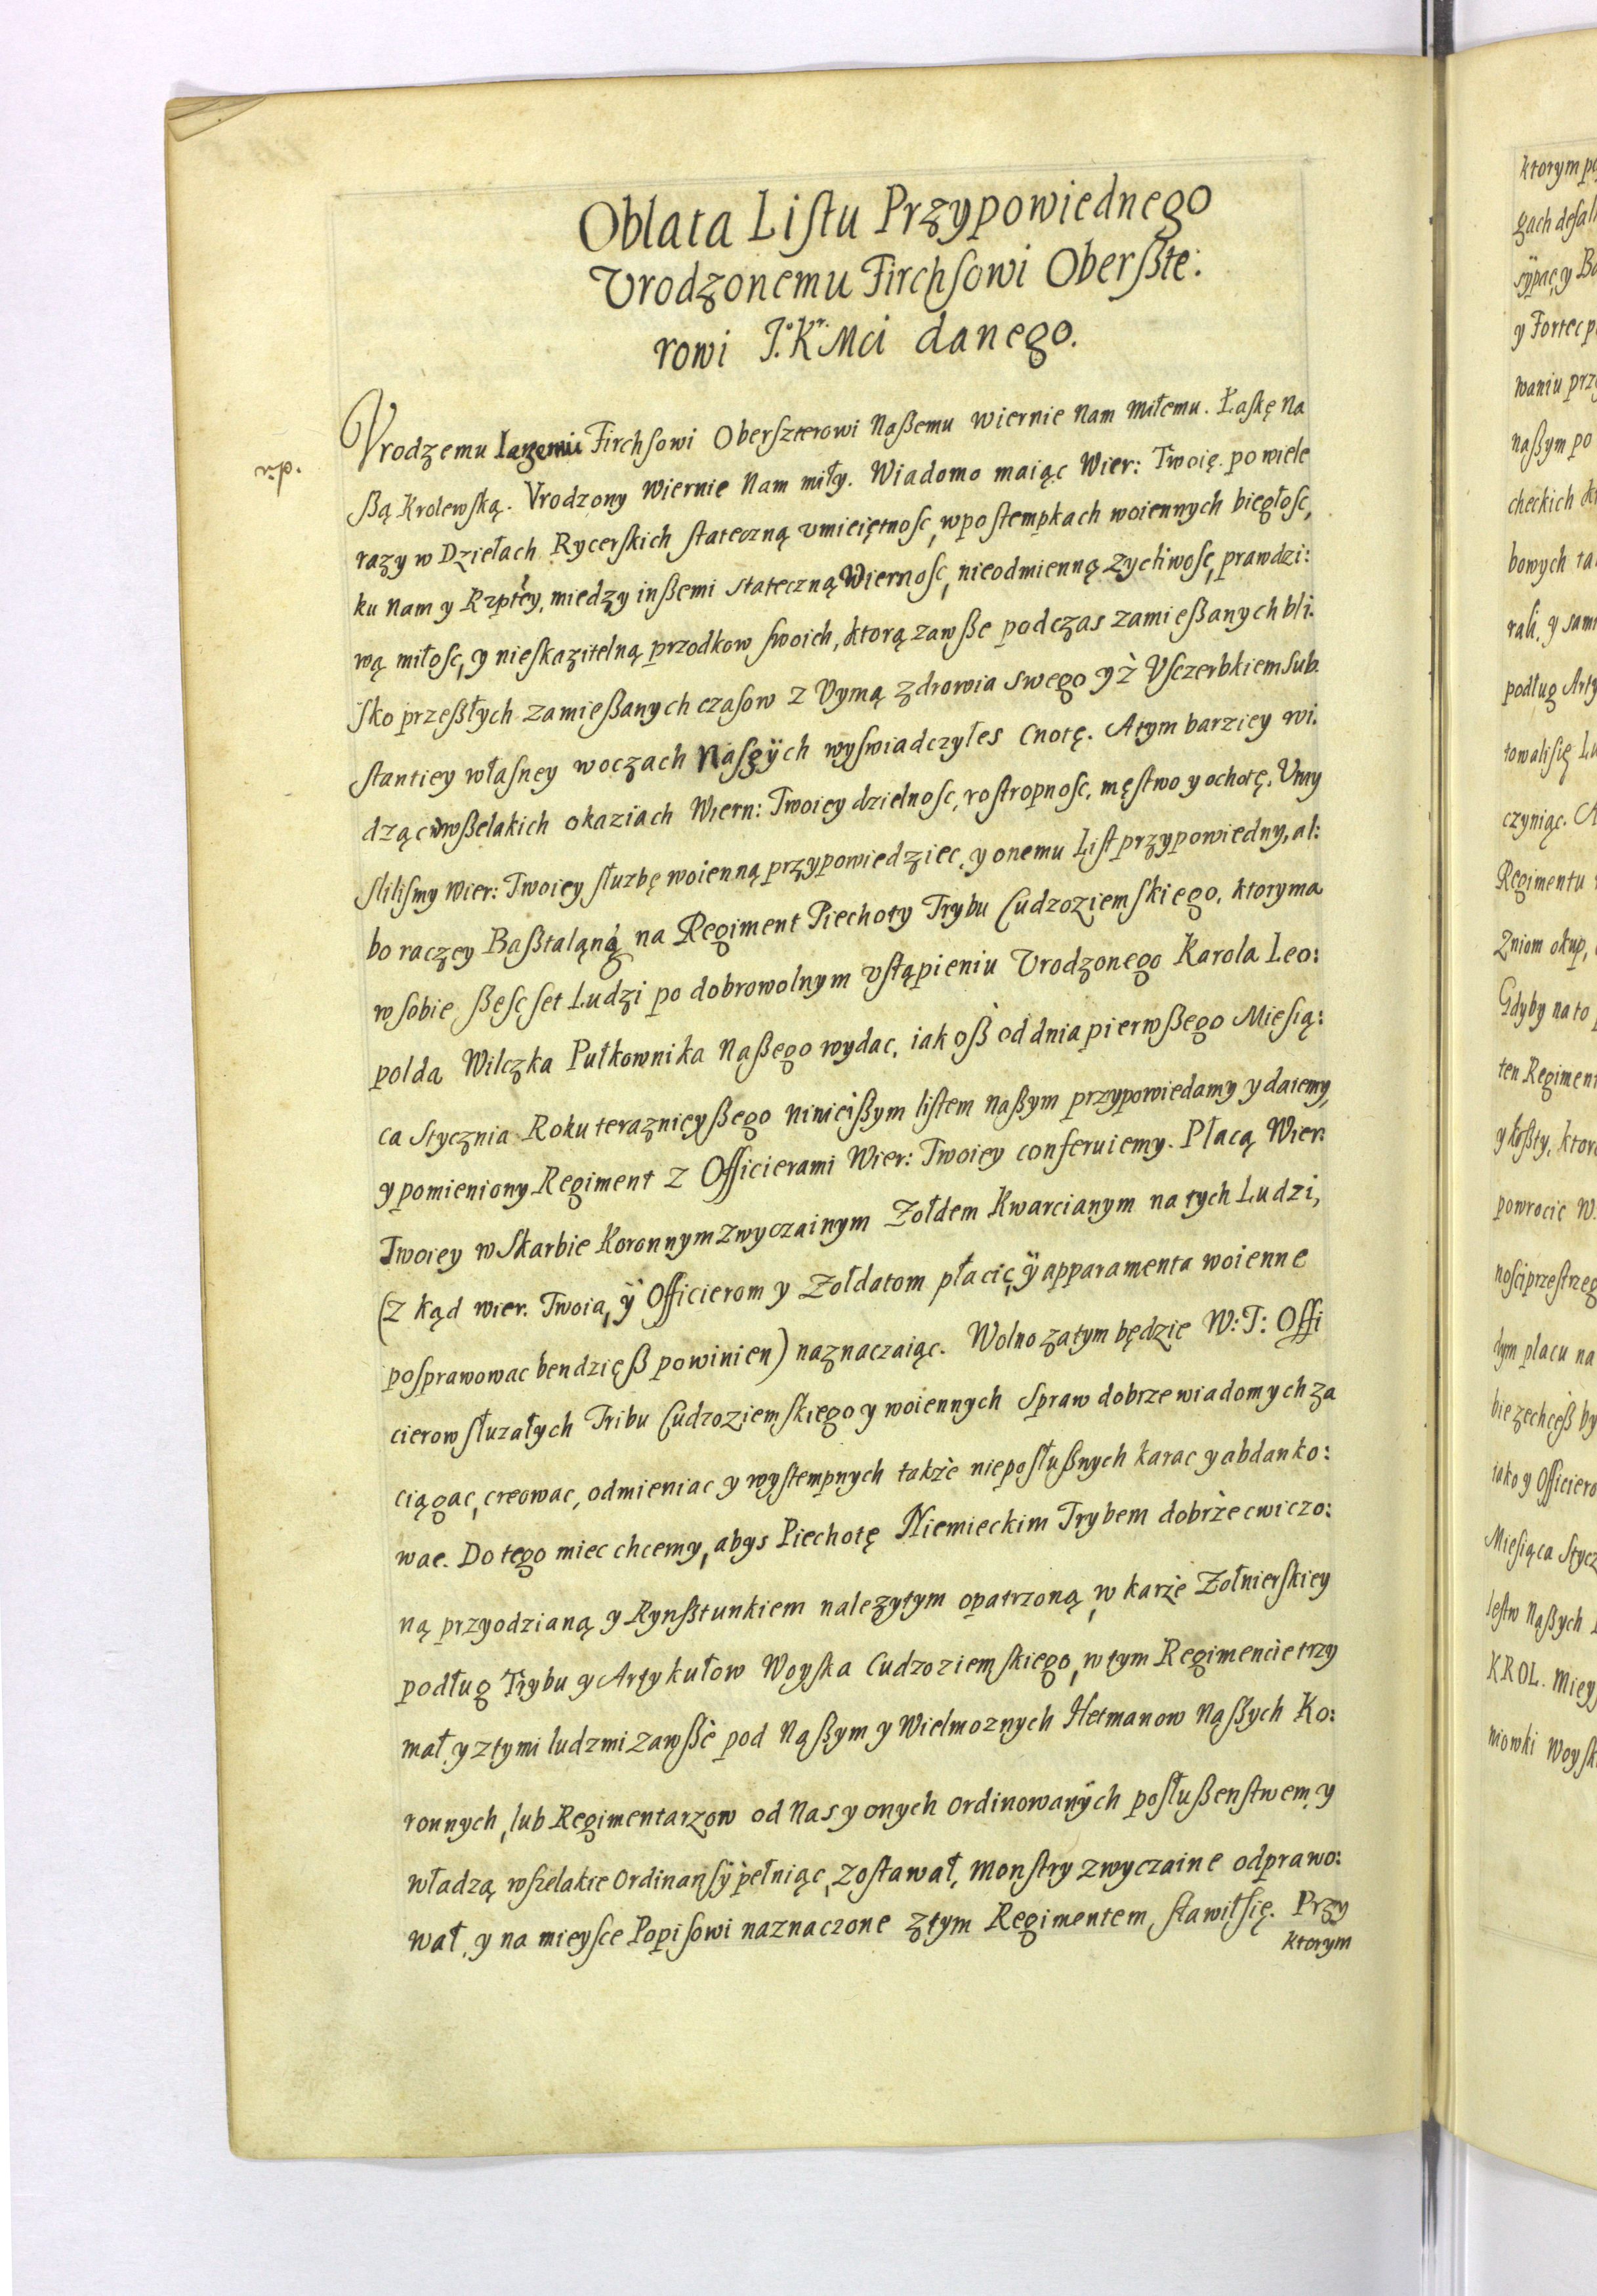 Oblata Listu Przypowiednego
Vrodzonemu Firchsowi Oberßte:
rowi J.° K.r. Mci danego.
Vrodzemu Firchsowi Oberszterowi Naßemu wiernie Nam miłemu. Łaskę Na
ßą Krolewską. Vrodzony Wiernie Nam miły. Wiadomo maiąc Wier: Twoię. po wiele
razy w Dziełach Rycerskich stateczną vmieiętnosc, w postempkach woiennych biegłosc,
ku Nam y Rzptèy, miedzy inßemi stateczną Wiernosc, nieodmienną zycliwosc, prawdzi:
wą miłosc, y nieskazitelną przodkow swoich, ktorą zawße podczas zamießanych bli:
sko przeßłych zamießanych czasow z Vymą zdrowia swego y z Vsczerbkiem sub
stantiey własney w oczach Naszÿch wyswiadczyłes cnotę. A tym barziey wi:
dząc w wßelakich okaziach Wiern: Twoiey dzielnosc, rostropnosc, męstwo y ochotę. Vmy
slilismy Wier: Twoiey słuzbę woienną przypowiedziec, y onemu List przypowiedny, al:
bo raczey Baßtaląną na Regiment Piechoty Trybu Cudzoziemskiego, ktory ma
w sobie ßesc set Ludzi po dobrowolnym vstąpieniu Vrodzonego Karola Leo:
polda Wilczka Pułkownika Naßego wydac, iakoß od dnia pierwßego Miesią:
ca Stycznia Roku teraznieyßego ninieißym listem Naßym przypowiedamy y daiemy,
y pomieniony Regiment z Officierami Wier: Twoiey conferuiemy. Płacą Wier:
Twoiey w Skarbie Koronnym zwyczainym Zołdem Kwarcianym na tych Ludzi,
(z kąd wier. Twoia, ÿ Officierom y Zołdatom płacic, ÿ apparamenta woienne
posprawowac bendzięß powinien) naznaczaiąc. Wolno zatym będzie W: T: Offi
cierow słuzałych Tribu Cudzoziemskiego y woiennych Spraw dobrze wiadomych za
ciągac, creowac, odmieniac y wystempnych takze nieposłußnych karac y abdanko:
wac. Do tego miec chcemy, abys Piechotę Niemieckim Trybem dobrze cwiczo:
ną przyodzianą y Rynßtunkiem nalezytym opatrzoną, w karze Zołnierskiey
podług Trybu y Artykułow Woyska Cudzoziemskiego, w tym Regimencie trzy
mał, y z tymi ludzmi zawßè pod Naßym y Wielmoznych Hetmanow Naßych Ko:
ronnych, lub Regimentarzow od Nas y onych ordinowanÿch posłußenstwem, y
władzą wszelakie Ordinansÿ pełniąc, zostawał, Monstry zwyczaine odprawo:
wał, y na mieysce Popisowi naznaczone z tym Regimentem stawił się. Przy
ktorym
ktorym
y Fortec
waniu
naßym po
checkich
bowych
rali, y
podług
czyniąc.
Regimentu
Zniom okup,
Gdyby na to
ten
powrocic
dym placu na
iako y
Miesiąca
Naßych
KROL.